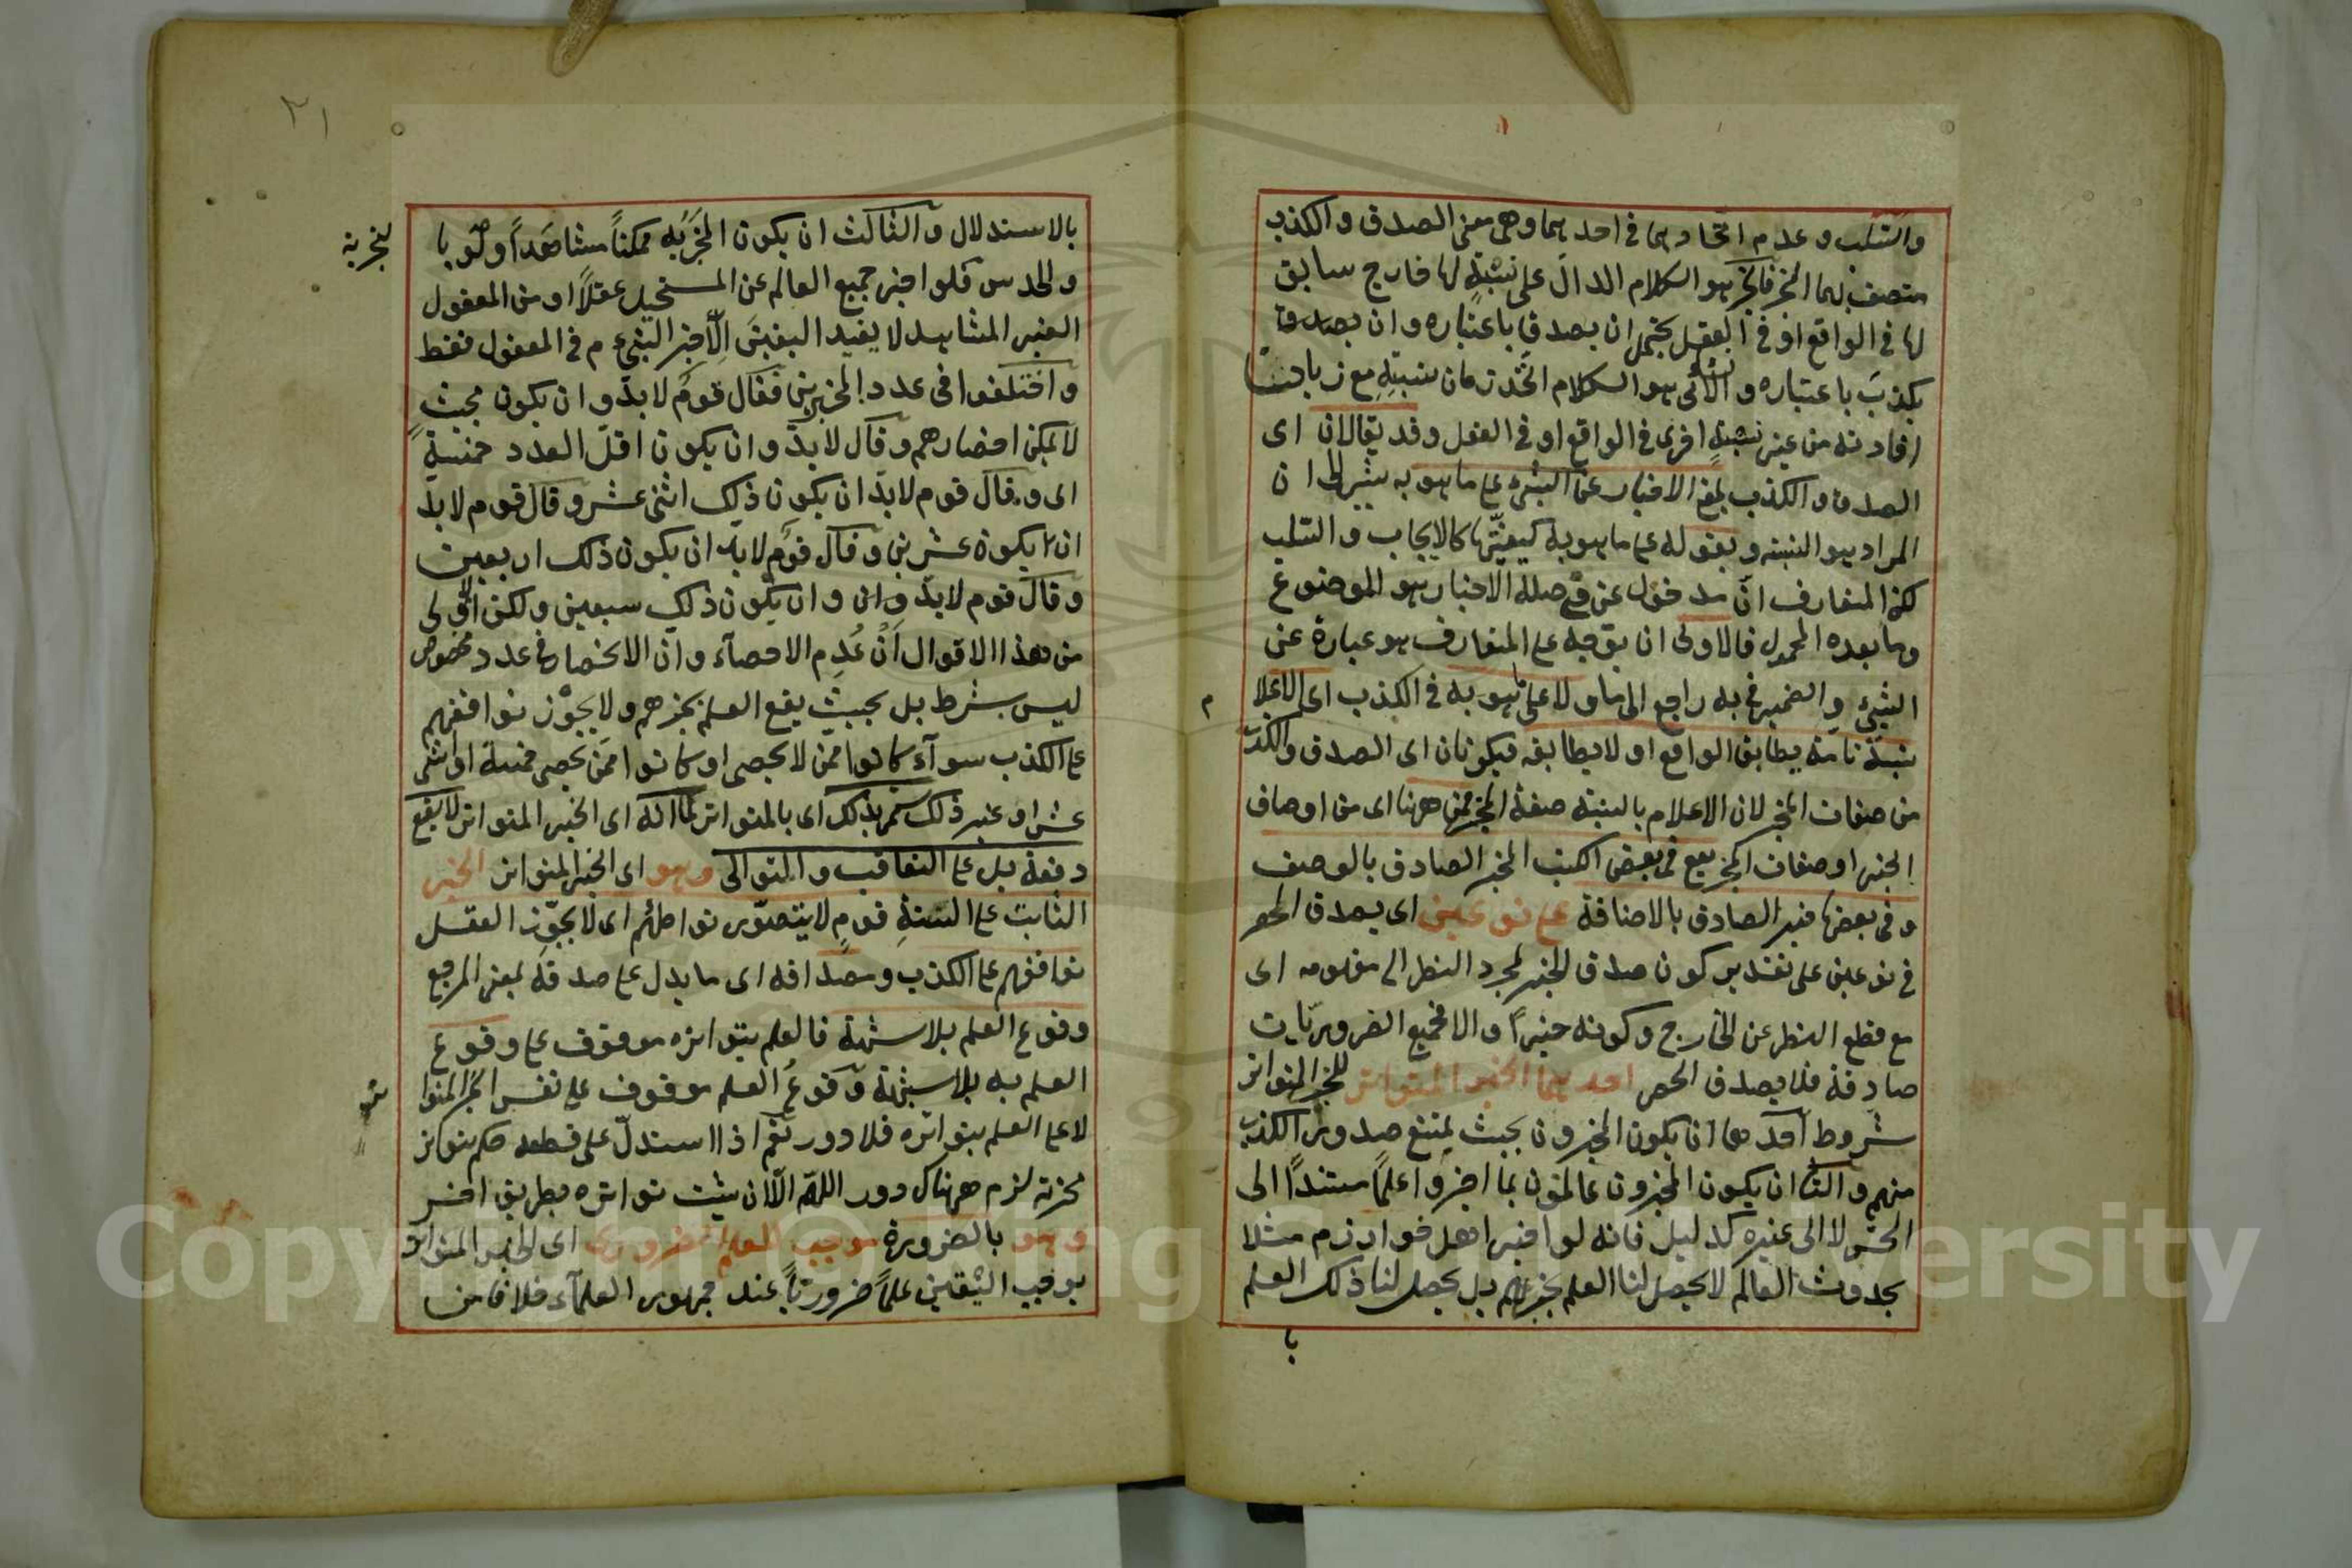 والسلب وعدم اتحادهما في احدهما وهي معنى الصدق والكذب
متصف بهما الخبر فالخبر هو الكلام الدال على نسبةٍ لها خارج سابق
لها في الواقع او في العقل يحتمل ان يصدق باعتباره وان
يكذبَ باعتباره والانشائى هو الكلام اتحد زمان نسبتِهِ مع زمان
افادته من غير نسبةٍ اخرى في الواقع او في العقل وقد يقالان اى
الصدق والكذب بمعنى الاخبار عن الشئ على ما هو به يشير الى ان
المراد هو النسبة وبقوله على ما هو به كيفيّتها كالايجاب والسّلب
لكن المتعارف انّ مدخول عن في صلة الاخبار هو الموضوع
وما بعده المحمول فالاولى ان يوجه على المتعارف هو عبارة عن
الشئ والضمير في به راجع الى ما ولا على ما هو به في الكذب اى الاعلام
م
بنسبة تامة يطابق الواقع او لا يطابقه فيكونان اى الصدق والكذب
من صفات المخبر لان الاعلام بالنسبة صفة المخبر فمن ههنا اى من اوصاف
الخبر او صفات المخبر يقع في بعض الكتب الخبر الصادق بالوصف
وفي بعضها خبر الصادق بالاضافة على نوعين اى يصدق الحصر
في نوعين على تقدير كون صدق الخبر لمجرد النظر الى مفهومه اى
مع قطع النظر عن الخارج وكونه خبراً والا فجميع الضروريّات
صادقة فلا يصدق الحصر احدهما الخبر المتواتر للخبر المتواتر
شروط احدها ان يكون المخبرون بحيث يمتنع صدور الكذب
منهم والثانى ان يكون المخبرون عالمون بما اخبروا علماً مستنداً الى
الحسّ لا الى غيره كدليل فانه لو اخبر اهل خوارزم مثلا
بحدوث العالم لا يحصل لنا العلم بخبرهم بل يحصل لنا ذلك العلم
با
٢١
بالاستدلال والثالث ان يكون المخبَر به ممكناً مشاهَداً
لتجربة
والحدس فلو اخبر جميع العالم عن المستحيل عقلاً او من المعقول
الغير المشاهد لا يفيد اليقينَ الّا خبر النبىء م في المعقول فقط
واختلفوا في عدد المخبرين فقال قوم لا بدّ وان يكون بحيث
لا يمكن احضارهم وقال لا بدّ وان يكون اقلّ العدد خمسة
اى وقال قوم لا بدّ ان يكون ذلك اثنى عشر وقال قوم لا بدّ
ان يكون عشرين وقال قوم لا بد ان يكون ذلك اربعين
وقال قوم لا بدّ وان يكون ذلك سبعين ولكن الاولى
من هذا الاقوال انّ عدم الاحصآء وان الانحصار في عدد مخصوص
ليس بشرط بل بحيث يقع العلم بخبرهم ولا يجوّز توافقهم
على الكذب سوآء كانوا ممّن لا يحصى او كانوا ممّن يحصى خمسة او اثنى
عشر او غير ذلك سمّى بذلك اى بالمتواتر لما انّه اى الخبر المتواتر لا يقع
دفعة بل على التعاقب والتوالى وهو اى الخبر المتواتر الخبر
الثابت على السنةِ قومٍ لا يتصوّر تواطئهم اى لا يجوّز العقل
توافقهم على الكذب ومصداقه اى ما يدل على صدقه بمعنى المرجع
وقوع العلم بلا شبهة فالعلم بتواتره موقوف على وقوع
العلم به بلا شبهة وقوعُ العلم موقوف على نفس الخبر المتوا
لا على العلم بتواتره فلا دور نعم اذا استدلّ على قطعه حكم بتواتر
خبرته لزم هناك دور اللهم الّا ان يثبت تواتره بطريق اخر
وهو بالضرورة موجب للعلم الضرورى اى الخبر المتواتر
يوجب اليقين علماً ضرورياً عند جمهور العلمآء خلافا من
Copyright © King Saud University